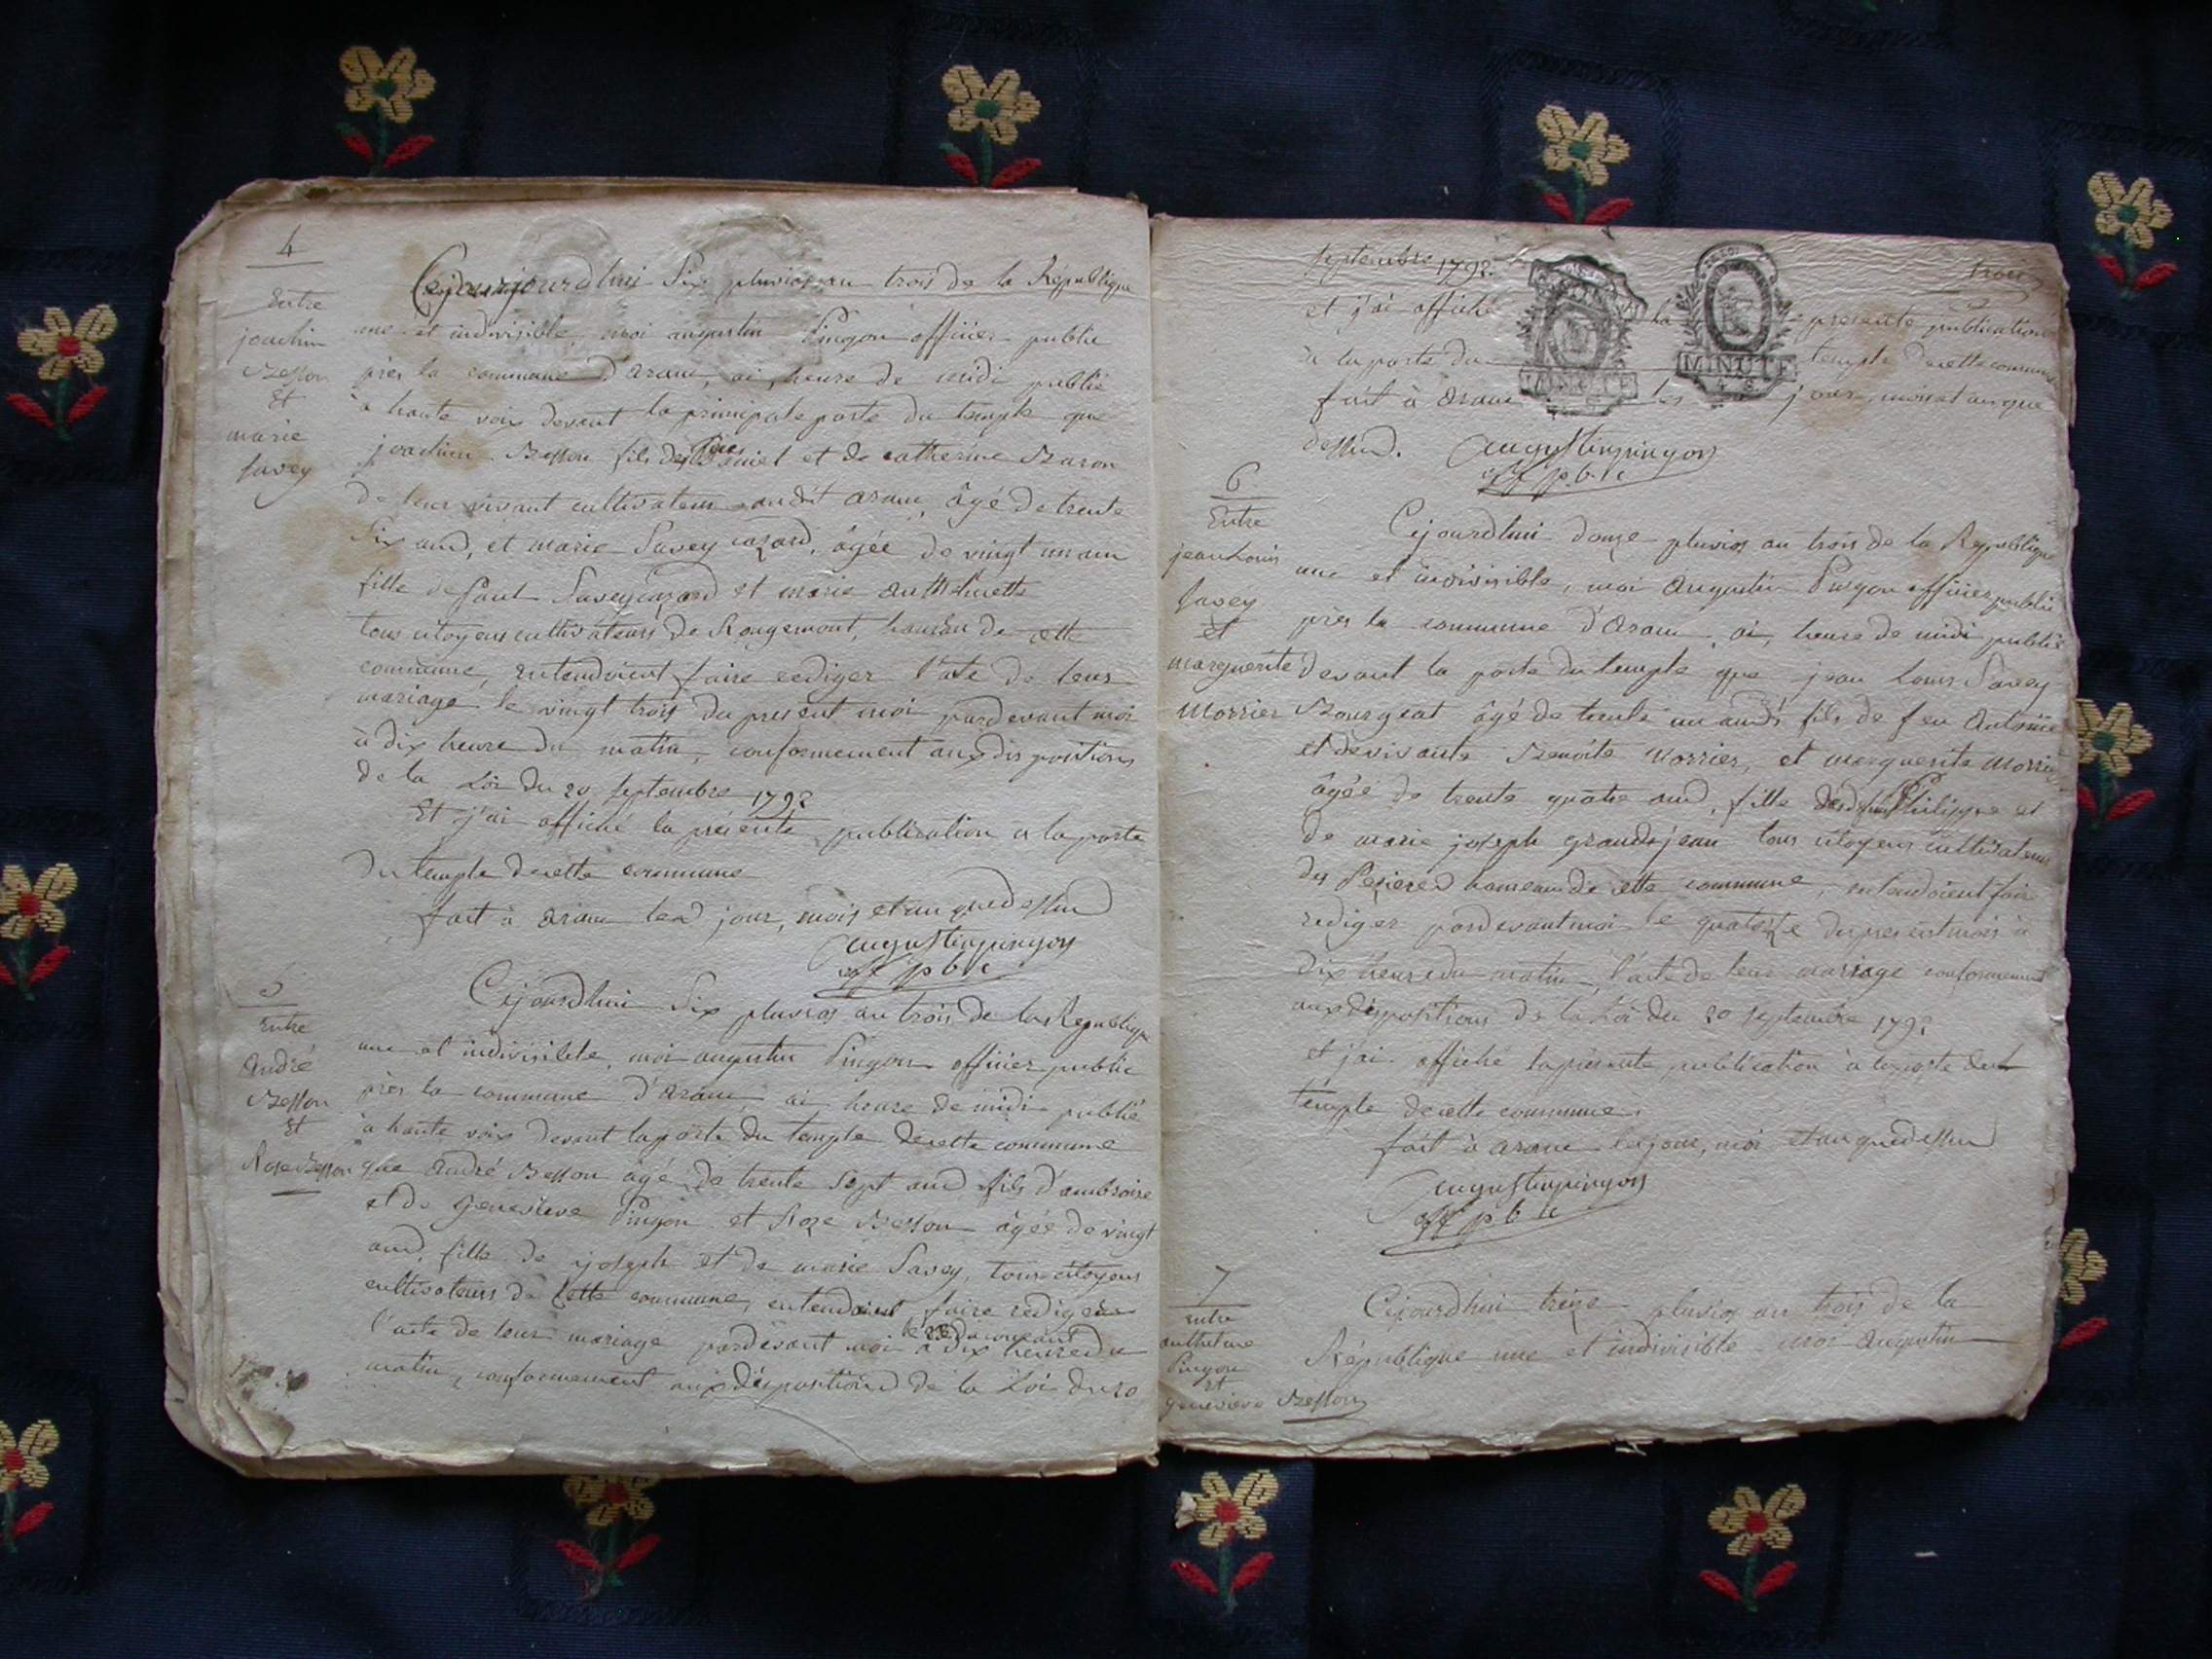 4
Entre
joachim
Besson
et
marie
savey
Cejourdhui Six pluvios an trois de la République
une et indivisible, moi augustin Pingon officier public
près la commune d'aranc, ai, heure de midi publié
à haute voix devant la principale porte du temple que
joachim Besson fils des et de catherine Baron
de leur vivant cultivateurs audit aranc, âgé de trente
Six ans, et marie Savey cazard, âgée de vingt un an
fille de Savey cazard et marie anthelmette
tous citoyens cultivateurs de Rougemont, hameau de cette
commune, entendoient faire rediger l'acte de leur
mariage le vingt trois du present moi pardevant moi
à dix heure du matin, conformement aux dispositions
de la Loi du 20 septembre 1792
Et j'ai affiché la présente publication a la porte
du temple de cette commune
fait à aranc les jour, mois et an que dessus
augustin pingon
off pblc
5
Entre
André
Besson
et
Rose Besson
Cejourdhui Six pluvios an trois de la République
une et indivisible, moi augustin Pingon officier public
près la commune d'aranc ai heure de midi publié
à haute voix devant la porte du temple de cette commune
que andré Besson âgé de trente sept ans fils d'ambroise
et de genevieve Pingon et Roze Besson âgée de vingt
ans, fille de joseph et de marie Savey, tous citoyens
cultivateurs de cette commune, entendoient faire rediger
l'acte de leur mariage pardevant moi le 23 du courant à dix heure du
matin, conformement aux dispositions de la Loi du 20
septembre 1792.
trois
et j'ai affiché la presente publication
à la porte du temple de cette commune
fait à aranc les jour, mois et an que
dessus. augustin pingon
off pblc
MINUTE
MINUTE
6
Entre
jean Louis
savey
et
marguerite
Morrier
Cejourdhui douze pluvios an trois de la République
une et indivisible, moi Augustin Pingon officier public
près la commune d'Aranc, ai, heure de midi publié
devant la porte du temple que jean Louis Savey
Bourgeat âgé de trente un ans fils de feu Antoine
et de vivante Benoite Morrier, et marguerite Morrier
âgée de trente quatre ans, fille Philippe et
de marie joseph grandjean tous citoyens cultivateurs
des Pezieres hameau de cette commune, entendoient faire
rediger pardevant moi le quatorze du present mois à
dix heure du matin, l'acte de leur mariage conformement
aux dispositions de la Loi du 20 septembre 1792
et j'ai affiché la présente publication à la porte du
temple de cette commune.
fait à aranc les jour, moi et an que dessus
augustin pingon
off pblc
7
Entre
anthelme
Pingon
et
genevieve Besson
Cejourdhui treize pluvios an trois de la
République une et indivisible moi Augustin